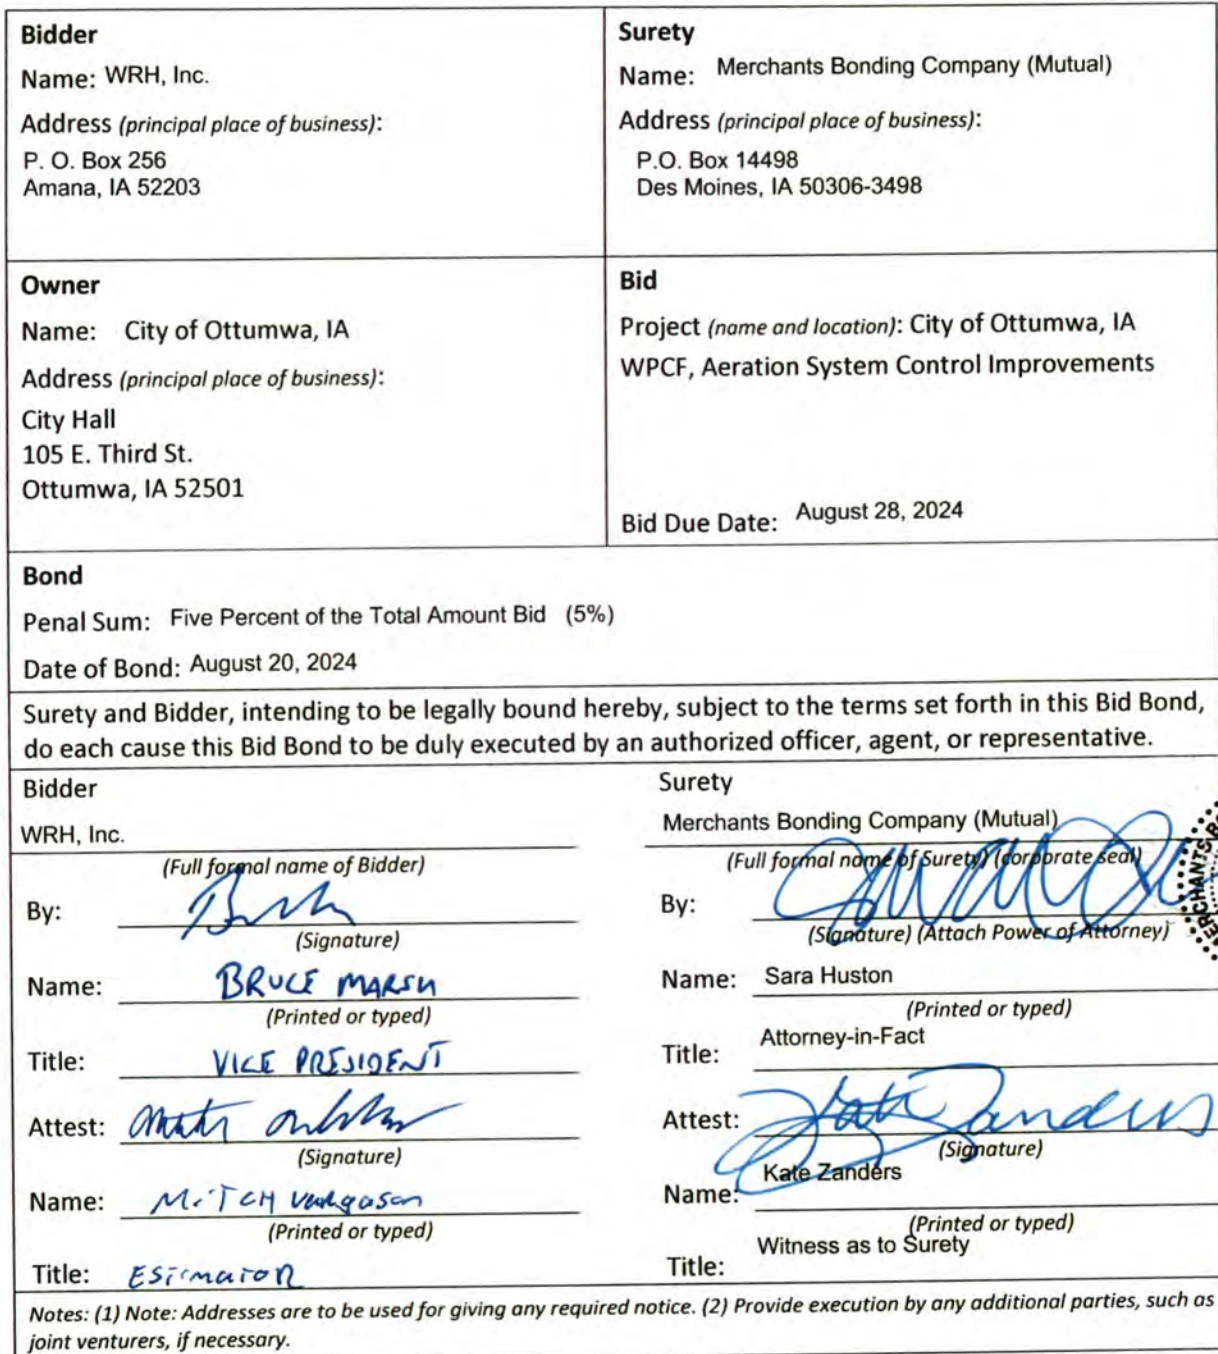 Bidder
Name: WRH, Inc.
Address (principal place of business):
P. O. Box 256
Amana, IA 52203
Surety
Name: Merchants Bonding Company (Mutual)
Address (principal place of business):
P.O. Box 14498
Des Moines, IA 50306-3498
Owner
Name: City of Ottumwa, IA
Address (principal place of business):
City Hall
105 E. Third St.
Ottumwa, IA 52501
Bid
Project (name and location): City of Ottumwa, IA
WPCF, Aeration System Control Improvements
Bid Due Date: August 28, 2024
Bond
Penal Sum: Five Percent of the Total Amount Bid (5%)
Date of Bond: August 20, 2024
Surety and Bidder, intending to be legally bound hereby, subject to the terms set forth in this Bid Bond,
do each cause this Bid Bond to be duly executed by an authorized officer, agent, or representative.
Bidder
WRH, Inc.
(Full formal name of Bidder)
By:
(Signature)
Name: BRUCE MARSH
(Printed or typed)
Title: VICE PRESIDENT
Attest:
(Signature)
Name: MITCH
(Printed or typed)
Title: ESTIMATOR
Surety
Merchants Bonding Company (Mutual)
(Full formal name of Surety) (corporate seal)
By:
(Signature) (Attach Power of Attorney)
Name: Sara Huston
(Printed or typed)
Title: Attorney-in-Fact
Attest: Kate Zanders
(Signature)
Name: Kate Zanders
(Printed or typed)
Title: Witness as to Surety
Notes: (1) Note: Addresses are to be used for giving any required notice. (2) Provide execution by any additional parties, such as
joint venturers, if necessary.